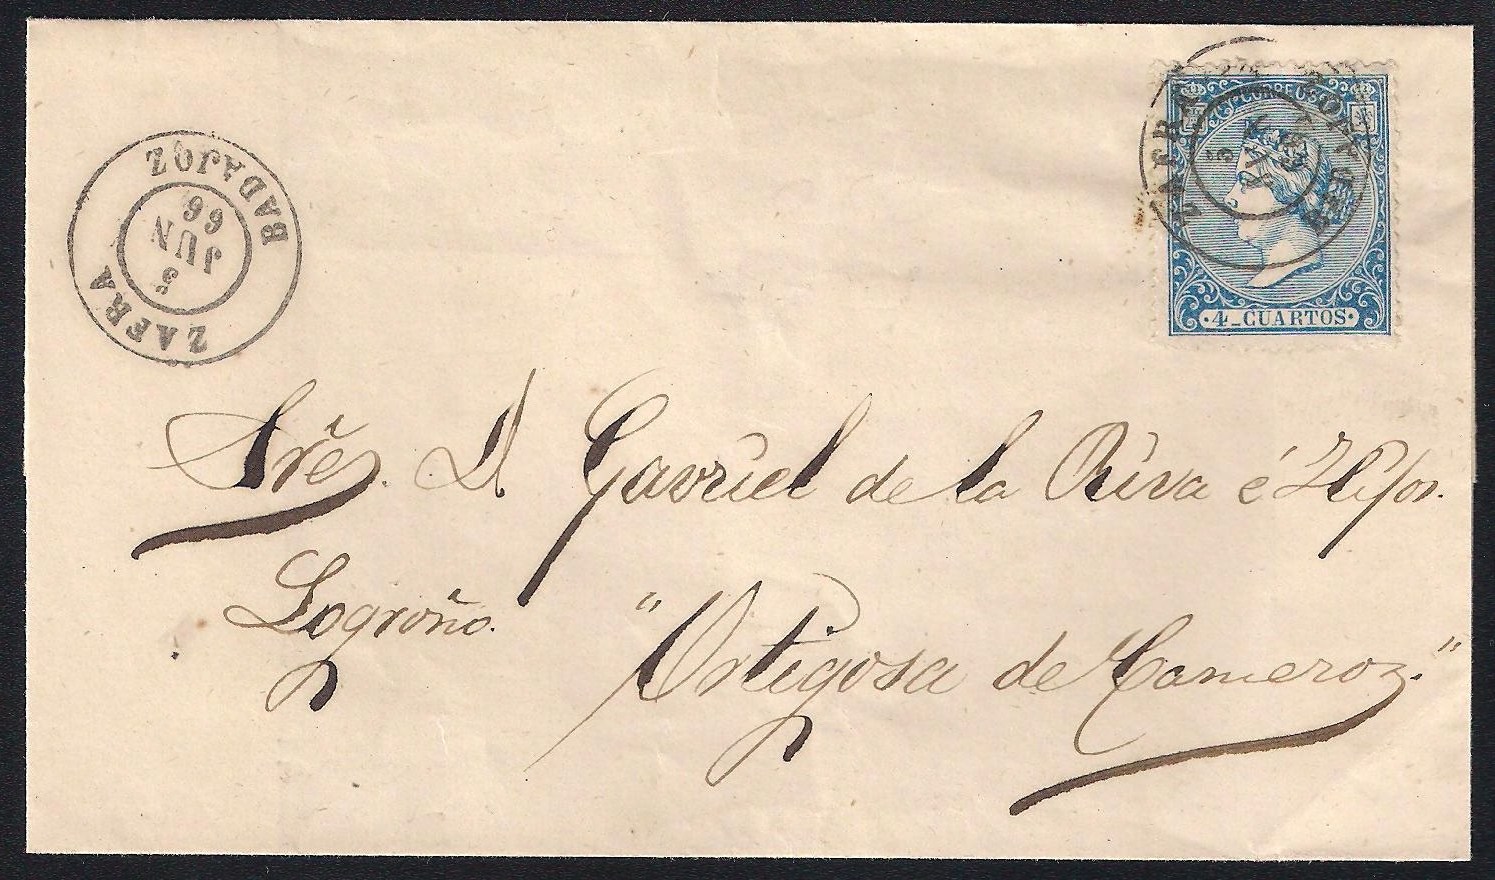 ZAFRA
5
JUN
66
BADAJOZ
CORREOS
ZAFRA
5
JUN
66
4_CUARTOS
Sres. D. Gavriel de la Riva é Hijos.
Logroño.
"Ortigosa de Cameros."